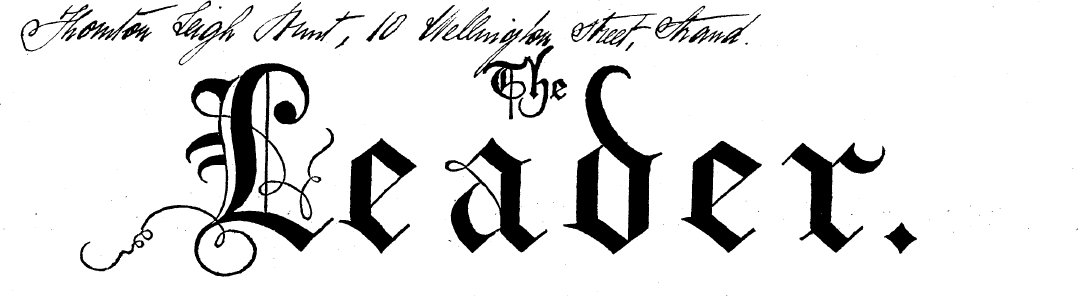 Thornton Leigh Hunt, 10 Wellington Street, Strand.
The
Leader.